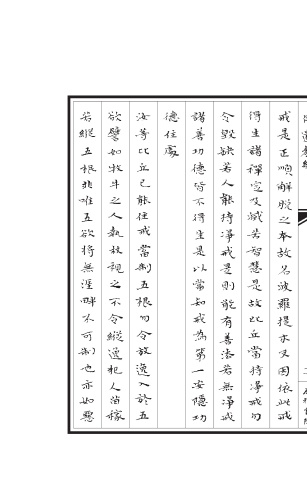 戒是正順解脫之本故名波羅提木叉因依此戒
得生諸禪定及滅苦智慧是故比丘當持淨戒勿
令毀缺若人能持淨戒是則能有善法若無淨戒
諸善功德皆不得生是以當知戒為第一安隱功
德住處
汝等比丘已能住戒當制五根勿令放逸入於五
欲譬如牧牛之人執杖視之不令縱逸犯人苗稼
若縱五根非唯五欲將無涯畔不可制也亦如惡